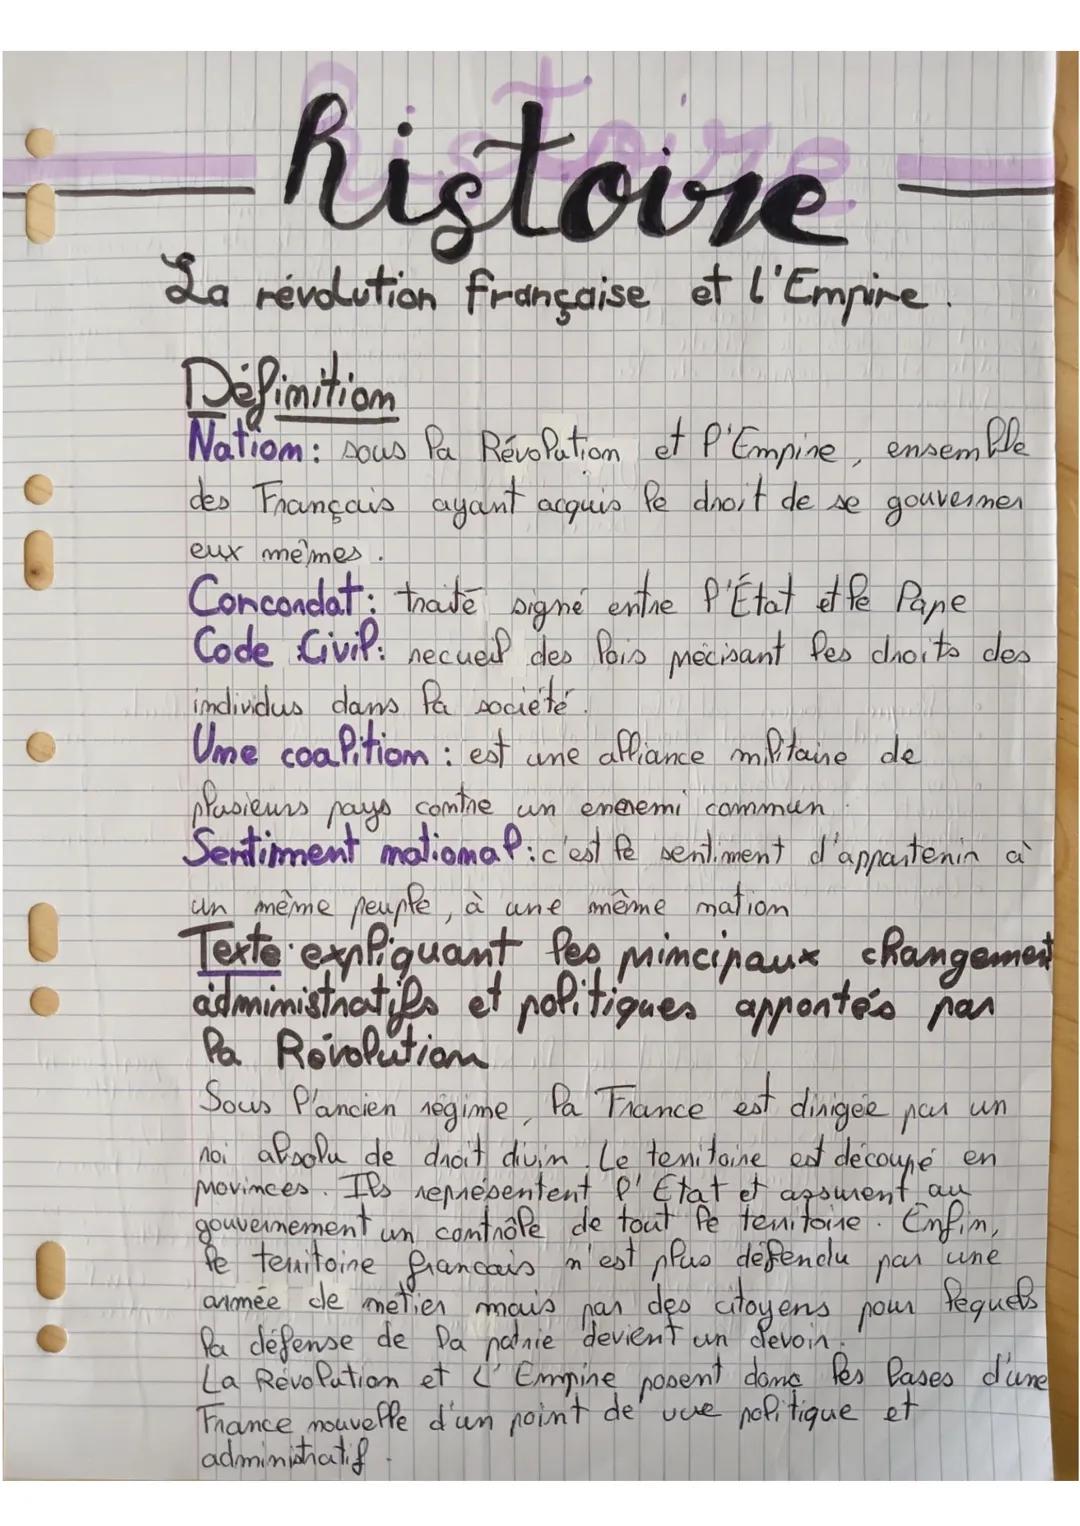 histoire
La révolution française et l'Empire.
Définition
Nation : sous la Révolution et l'Empire, ensemble
des Français ayant acquis le droit de se gouverner
eux mêmes.
Concordat : traité signé entre l'État et le Pape
Code Civil : recueil des lois précisant les droits des
individus dans la société.
Une coalition : est une alliance militaire de
plusieurs pays contre un ennemi commun.
Sentiment national : c'est le sentiment d'appartenir à
un même peuple, à une même nation
Texte expliquant les principaux changement
administratifs et politiques apportés par
la Révolution
Sous l'ancien régime, la France est dirigée par un
roi absolu de droit divin. Le territoire est découpé en
provinces. Ils représentent l'État et assurent au
gouvernement un contrôle de tout le territoire. Enfin,
le territoire francais n'est plus défendu par une
armée de métier mais par des citoyens pour lequels
la défense de la patrie devient un devoir.
La Révolution et L'Empire posent donc les bases d'une
France nouvelle d'un point de vue politique et
administratif.